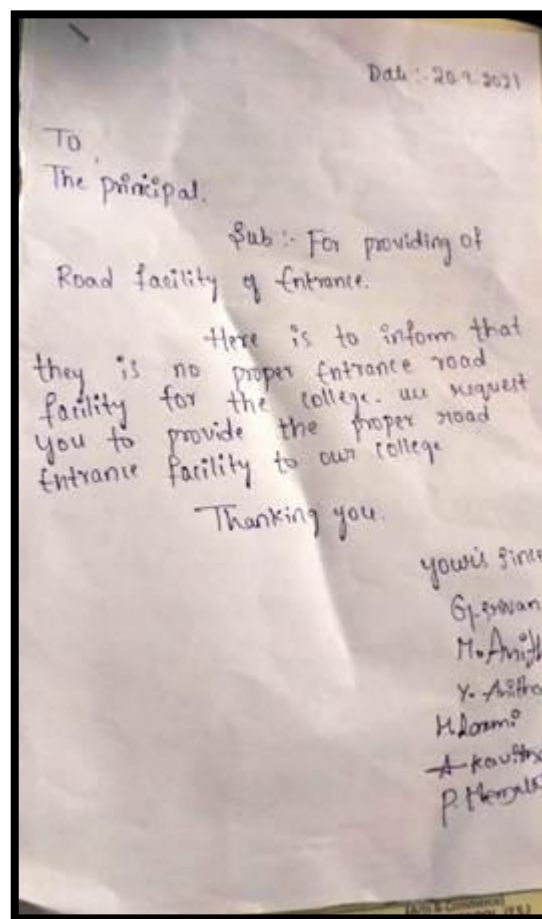 Date :- 20.9.2021
To,
The principal.
Sub :- For providing of
Road facility of Entrance.
Here is to inform that
they is no proper Entrance road
facility for the college. we request
you to provide the proper road
Entrance facility to our college
Thanking you.
your's Since
M. Anith
Y.
H. Laxmi
A Kavitha
P.
(Arts & Commerce)